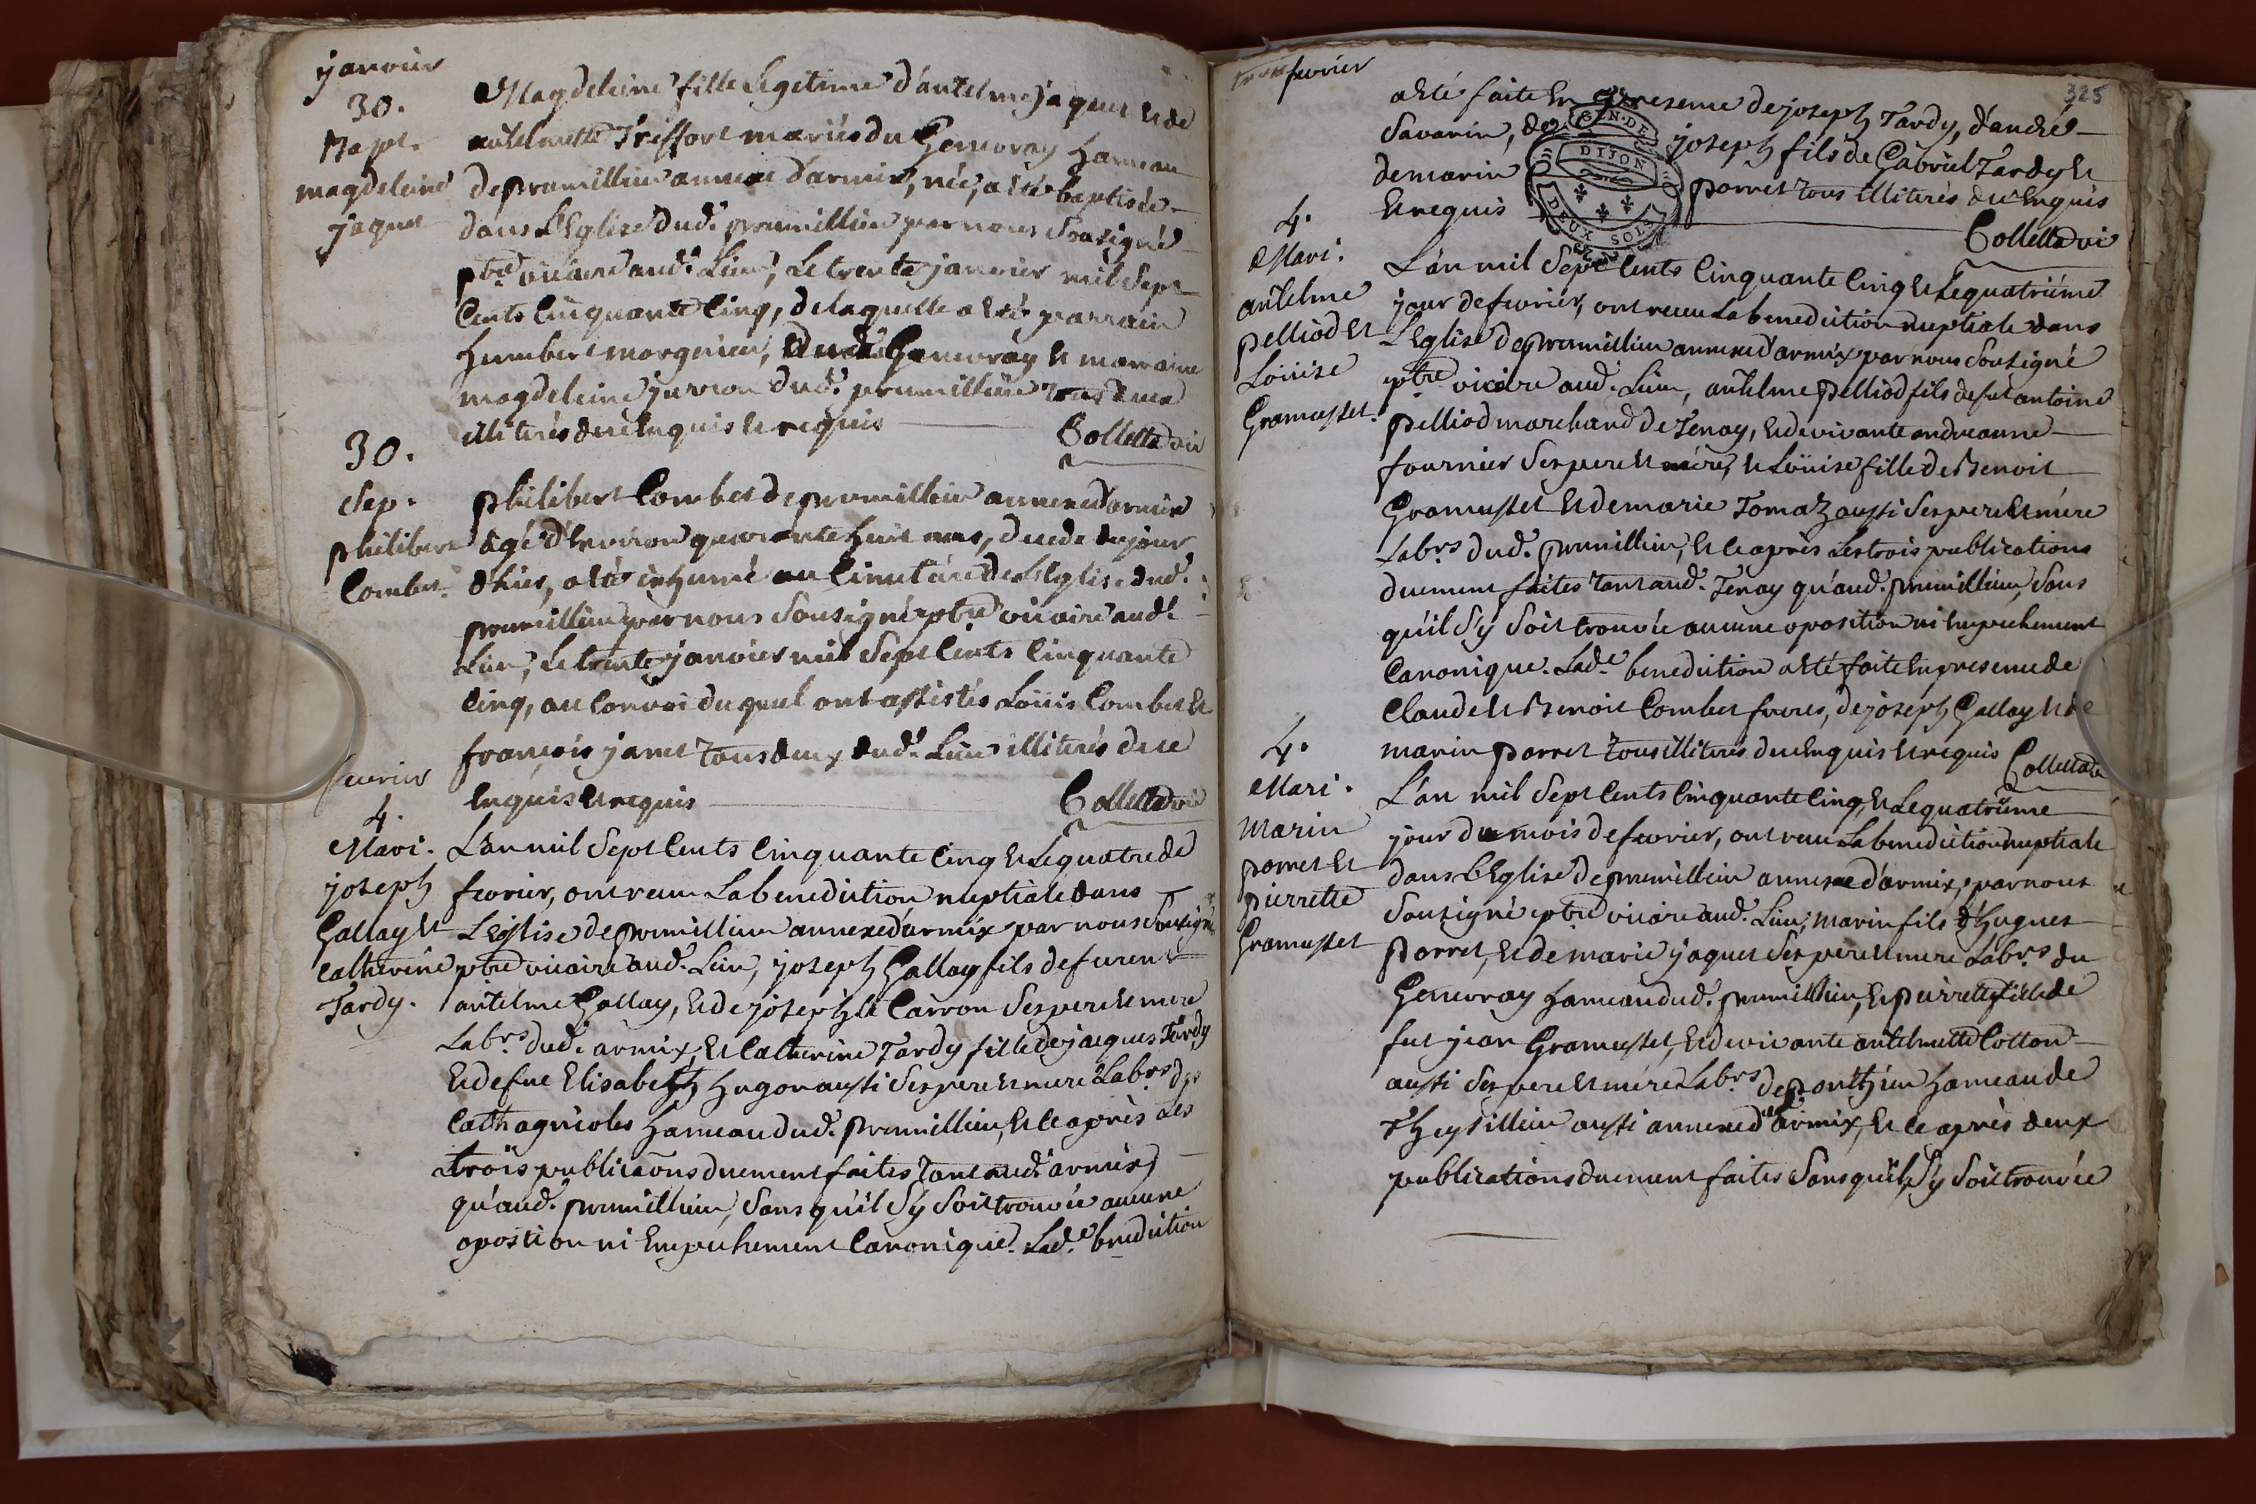 janvier
30.
Bapt.
magdeleine
jaquet
Magdeleine fille Legetime d'antelme jaquet et de
antelmette Treffort mariés du Genevray hameau
de prumillieu annexe d'armix, née, a eté baptisée
dans L'Eglise dud. prumillieu par nous Sousigné
ptre vicaire aud. Lieu, Le trente janvier mil Sept
Cents Cinquante Cinq, de laquelle a eté parrain
humbert morgenieu, dud. Genevray et marraine
magdeleine juvron dud. prumillieu tous deux
illiterés de ce Enquis et requis
Colletta vic
30.
Sep.
philibert
Combet.
philibert Combet de prumillieu annexe d'armix
agé d'Environ quarante huit ans, decedé du jour
d'hier, a eté inhumé au Cimetiére de L'Eglise dud.
prumillieu par nous Sousigné ptre vicaire aud.
Lieu, Le trente janvier mil Sept Cents Cinquante
Cinq, au Convoi duquel ont assistés Loüis Combet et
françois janet tous deux dud. Lieu illiterés de ce
Enquis et requis
Colletta vic
fevrier
4.
Mari.
joseph
Gallay et
catherine
Tardy.
L'an mil Sept Cents Cinquante Cinq et Le quatre de
fevrier, ont receu La benediction nuptiale dans
L'Eglise de prumillieu annexe d'armix par nous Sousigné
ptre vicaire aud. Lieu, joseph Gallay fils de furent
antelme Gallay, et de josephte Carron Ses pere et mere
Labrs dud. armix, et Catherine Tardy fille de jacques Tardy
et de fue Elisabeth hugon aussi Ses pere et mere Labrs de
Cathagricoles hameau dud. prumillieu, et ce après Les
trois publicaõns duement faites tant aud. armix,
qu'aud. prumillieu, Sans qu'il S'y Soit trouvée aucune
oposition ni Empechement Canonique. Lad.e benediction
fevrier
325
a eté faite En presence de joseph Tardy, d'andré
Savarin, de joseph fils de Gabriel Tardy et
de marin porret tous illiterés de ce Enquis
et requis
Colletta vic
GEN. DE
DIJON
DEUX SOLS
4.
Mari.
antelme
pelliod et
Loüise
Gramusset.
L'an mil Sept Cents Cinquante Cinq et Le quatriéme
jour de fevrier, ont receu La benediction nuptiale dans
L'Eglise de prumillieu annexe d'armix par nous Sousigné
ptre vicaire aud. Lieu, antelme pelliod fils de fut antoine
pelliod marchand de Tenay, et de vivante andreanne
fournier Ses pere et mére, et Loüise fille de Benoit
Gramusset et de marie Tomaz aussi Ses pere et mére
Labrs dud. prumillieu, et ce après Les trois publications
duement faites tant aud. Tenay qu'aud. prumillieu, Sans
qu'il S'y Soit trouvée aucune oposition ni Empechement
Canonique. Lad.e benediction a eté faite En presence de
Claude et Benoit Combet freres, de joseph Gallay et de
marin porret tous illiterés de ce Enquis et requis
Colletta vic
4.
Mari.
Marin
porret et
pierrette
Gramusset
L'an mil Sept Cents Cinquante Cinq, et Le quatriéme
jour du mois de fevrier, ont receu La benediction nuptiale
dans L'Eglise de prumillieu annexe d'armix, par nous
Sousigné ptre vicaire aud. Lieu, marin fils d'hugues
porret, et de marie jaquet Ses pere et mere Labrs du
Genevray hameau dud. prumillieu, et pierrette fille de
fut jean Gramusset, et de vivante antelmette Cotton
aussi Ses pere et mére Labrs de ponthieu hameau de
Theysillieu aussi annexe d'armix, et ce après deux
publications duement faites Sans qu'il S'y Soit trouvée